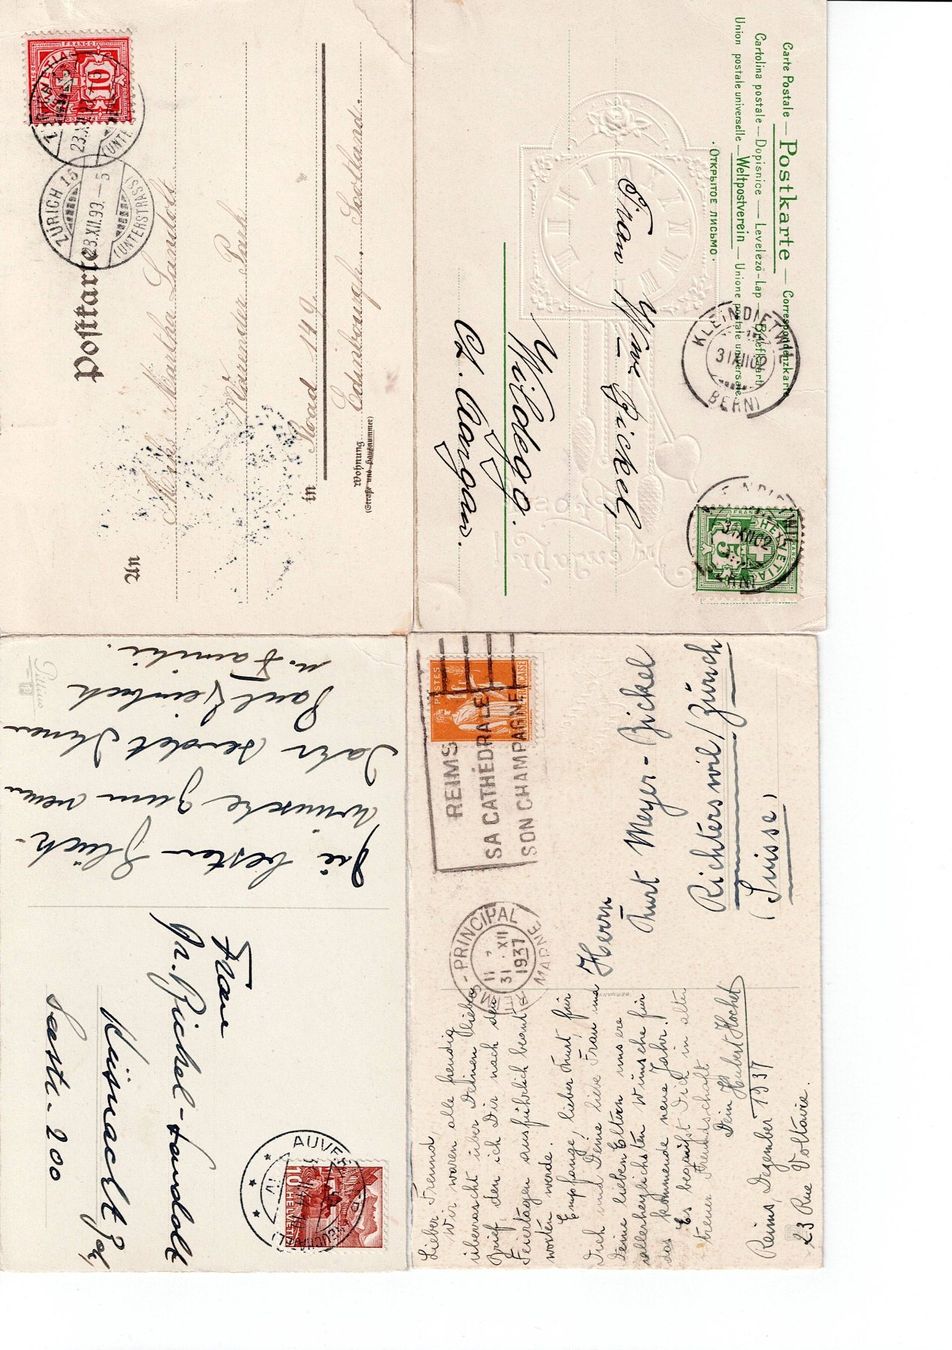 FRANCO
10
23.XII.9
ZÜRICH 13
23.XII.93.-5
(UNTERSTRASS)
Postkarte
An
Miss Martha Landolt
Park
in
149.
Edinbourgh. Scotland.
Wohnung
(Straße und Hausnummer)
Carte Postale — Postkarte — Correspondenzkarte
Cartolina postale — Dopisnice — Levelező-Lap — Briefkaart
Union postale universelle — Weltpostverein — Unione postale universale
· Открытое письмо ·
KLEINDIETWIL
31.XII.02
BERN
Frau Wwe Bickel
Wildegg.
Ct. Aargau.
HELVETIA
5
31.XII.02
Die besten Glück-
wünsche zum neuen
Jahr sendet Ihnen
Paul
u. Familie.
Frau
Dr. Bickel-Landolt
Küsnacht
Seestr. 200
AUVER
10
HELVETIA
POSTES
REIMS
SA CATHÉDRALE
SON CHAMPAGNE
REIMS-PRINCIPAL
31 . XII
1937
MARNE
Herrn
Kurt Meyer-Bickel
Richterswil/Zürich
(Suisse)
Lieber Freund
Wir waren alle freudig
überrascht über Deinen lieben
Brief, den ich Dir nach den
Feiertagen ausführlich beant-
worten werde.
Empfange, lieber Kurt für
Dich und Deine liebe Frau und
Deine lieben Eltern unsere
allerherzlichsten Wünsche für
das kommende neue Jahr!
Es Dich in alter
treuer Freundschaft
Dein Hubert
Reims, Dezember 1937
23 Rue Voltaire.